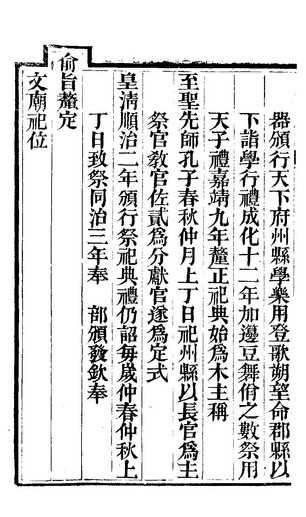 器頒行天下府州縣學樂用登歌朔望命郡縣以
下詣學行禮成化十二年加邊豆舞佾之數祭用
天子禮嘉靖九年釐正祀典始爲木主稱
至聖先師孔子春秋仲月上丁日祀州縣以長官爲主
祭官教官佐貳爲分獻官遂爲定式
皇淸順治二年頒行祭祀典禮仍詔每歲仲春仲秋上
丁日致祭同治三年奉 部頒發欽奉
俞旨釐定
文廟祀位